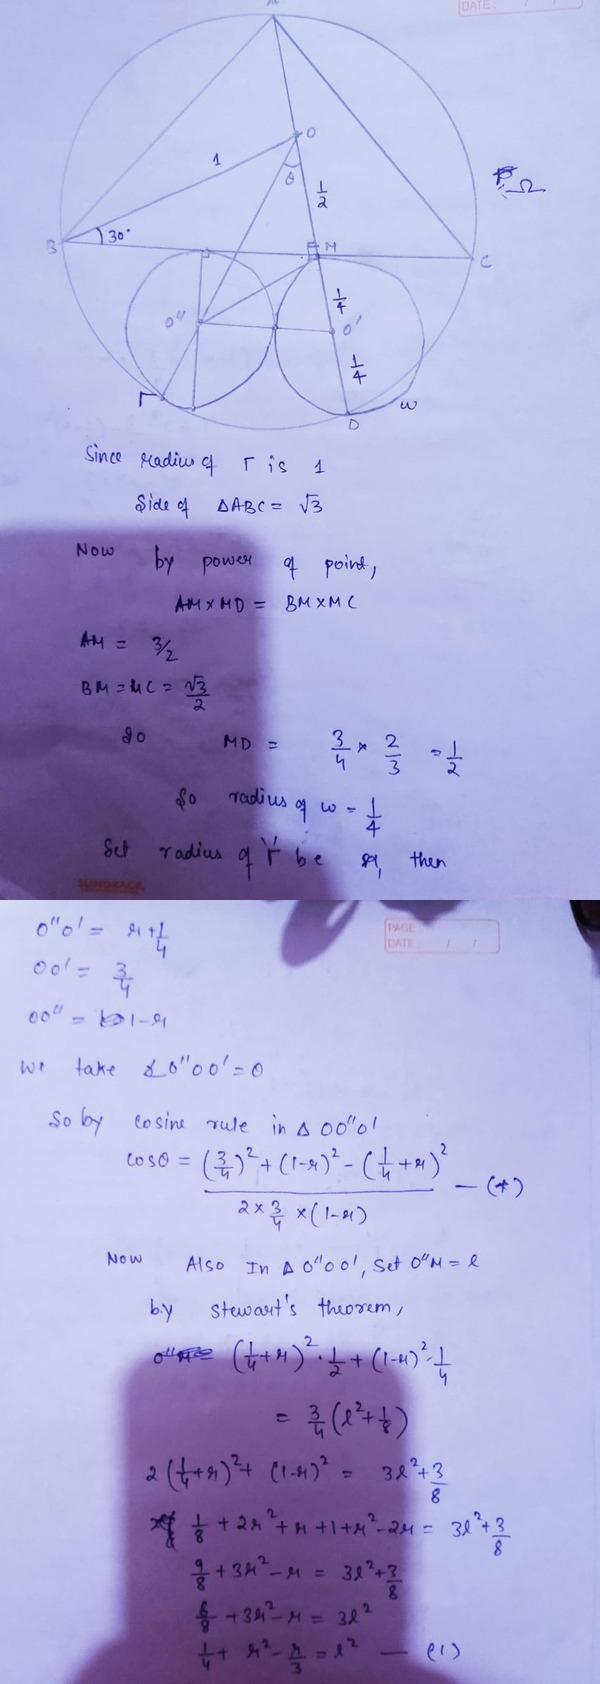 DATE: / /
A
O
1
θ
1/2
Ω
B
30°
M
C
1/4
O''
O'
1/4
Γ
D
ω
Since radius of Γ is 1
Side of △ABC = √3
Now by power of point,
AM×MD = BM×MC
AM = 3/2
BM = MC = √3/2
So MD = 3/4 × 2/3 = 1/2
So radius of ω = 1/4
Set radius of Γ be r, then
SUNDARAM
O''O' = r+1/4
PAGE:
DATE: / /
OO' = 3/4
OO'' = 1-r
We take ∡O''OO' = θ
So by cosine rule in △ OO''O'
cosθ = ((3/4)² + (1-r)² - (1/4+r)²) / (2×3/4×(1-r)) — (*)
Now Also In △ O''OO', Set O''M = l
by Stewart's theorem,
(1/4+r)²·1/2 + (1-r)²·1/4
= 3/4(l²+1/8)
2(1/4+r)² + (1-r)² = 3l²+3/8
1/8 + 2r² + r + 1 + r² - 2r = 3l²+3/8
9/8 + 3r² - r = 3l²+3/8
6/8 + 3r² - r = 3l²
1/4 + r² - r/3 = l² — (1)